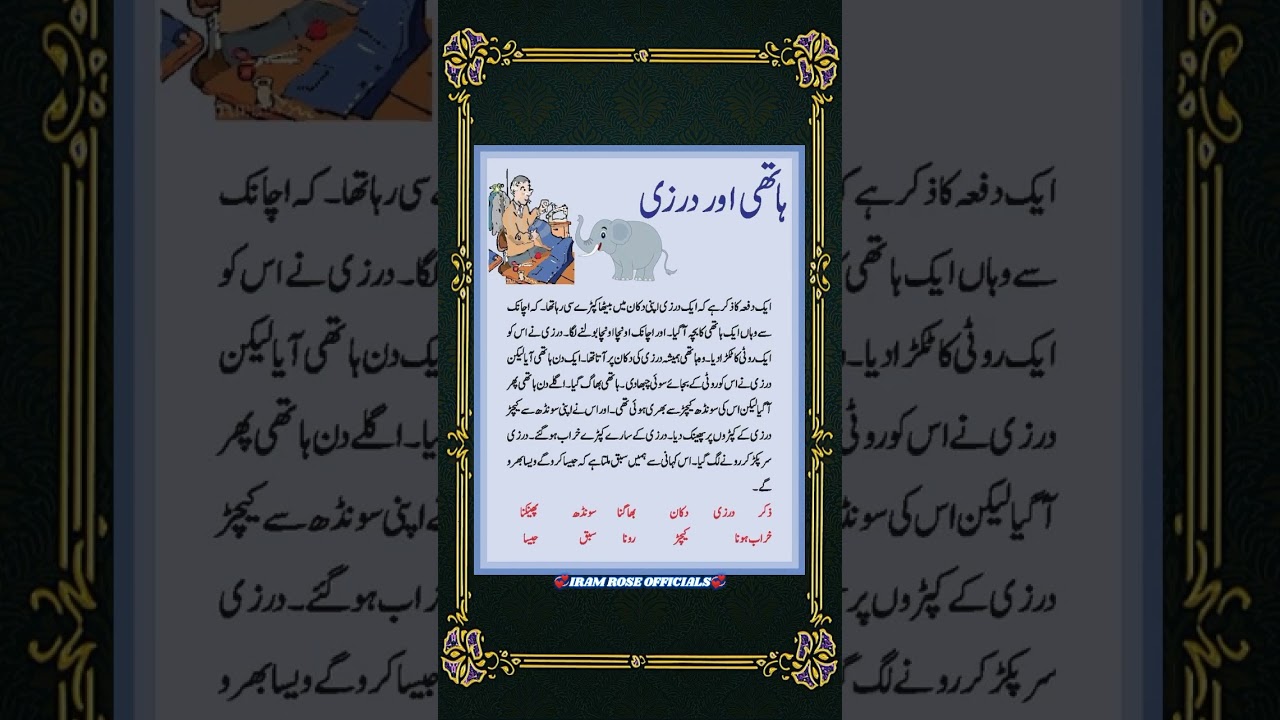 ہاتھی اور درزی
ایک دفعہ کا ذکر ہے کہ ایک درزی اپنی دکان میں بیٹھا کپڑے سی رہا تھا۔ کہ اچانک
سے وہاں ایک ہاتھی کا بچہ آ گیا۔ اور اچانک اونچا اونچا بولنے لگا۔ درزی نے اس کو
ایک روٹی کا ٹکڑا دیا۔ وہ ہاتھی ہمیشہ درزی کی دکان پر آتا تھا۔ ایک دن ہاتھی آیا لیکن
درزی نے اس کو روٹی کے بجائے سوئی چبھا دی۔ ہاتھی بھاگ گیا۔ اگلے دن ہاتھی پھر
آ گیا لیکن اس کی سونڈھ کیچڑ سے بھری ہوئی تھی۔ اور اس نے اپنی سونڈھ سے کیچڑ
درزی کے کپڑوں پر پھینک دیا۔ درزی کے سارے کپڑے خراب ہو گئے۔ درزی
سر پکڑ کر رونے لگ گیا۔ اس کہانی سے ہمیں سبق ملتا ہے کہ جیسا کرو گے ویسا بھرو
گے۔
ذکر درزی دکان بھاگنا سونڈھ پھینکنا
خراب ہونا کیچڑ رونا سبق جیسا
IRAM ROSE OFFICIALS